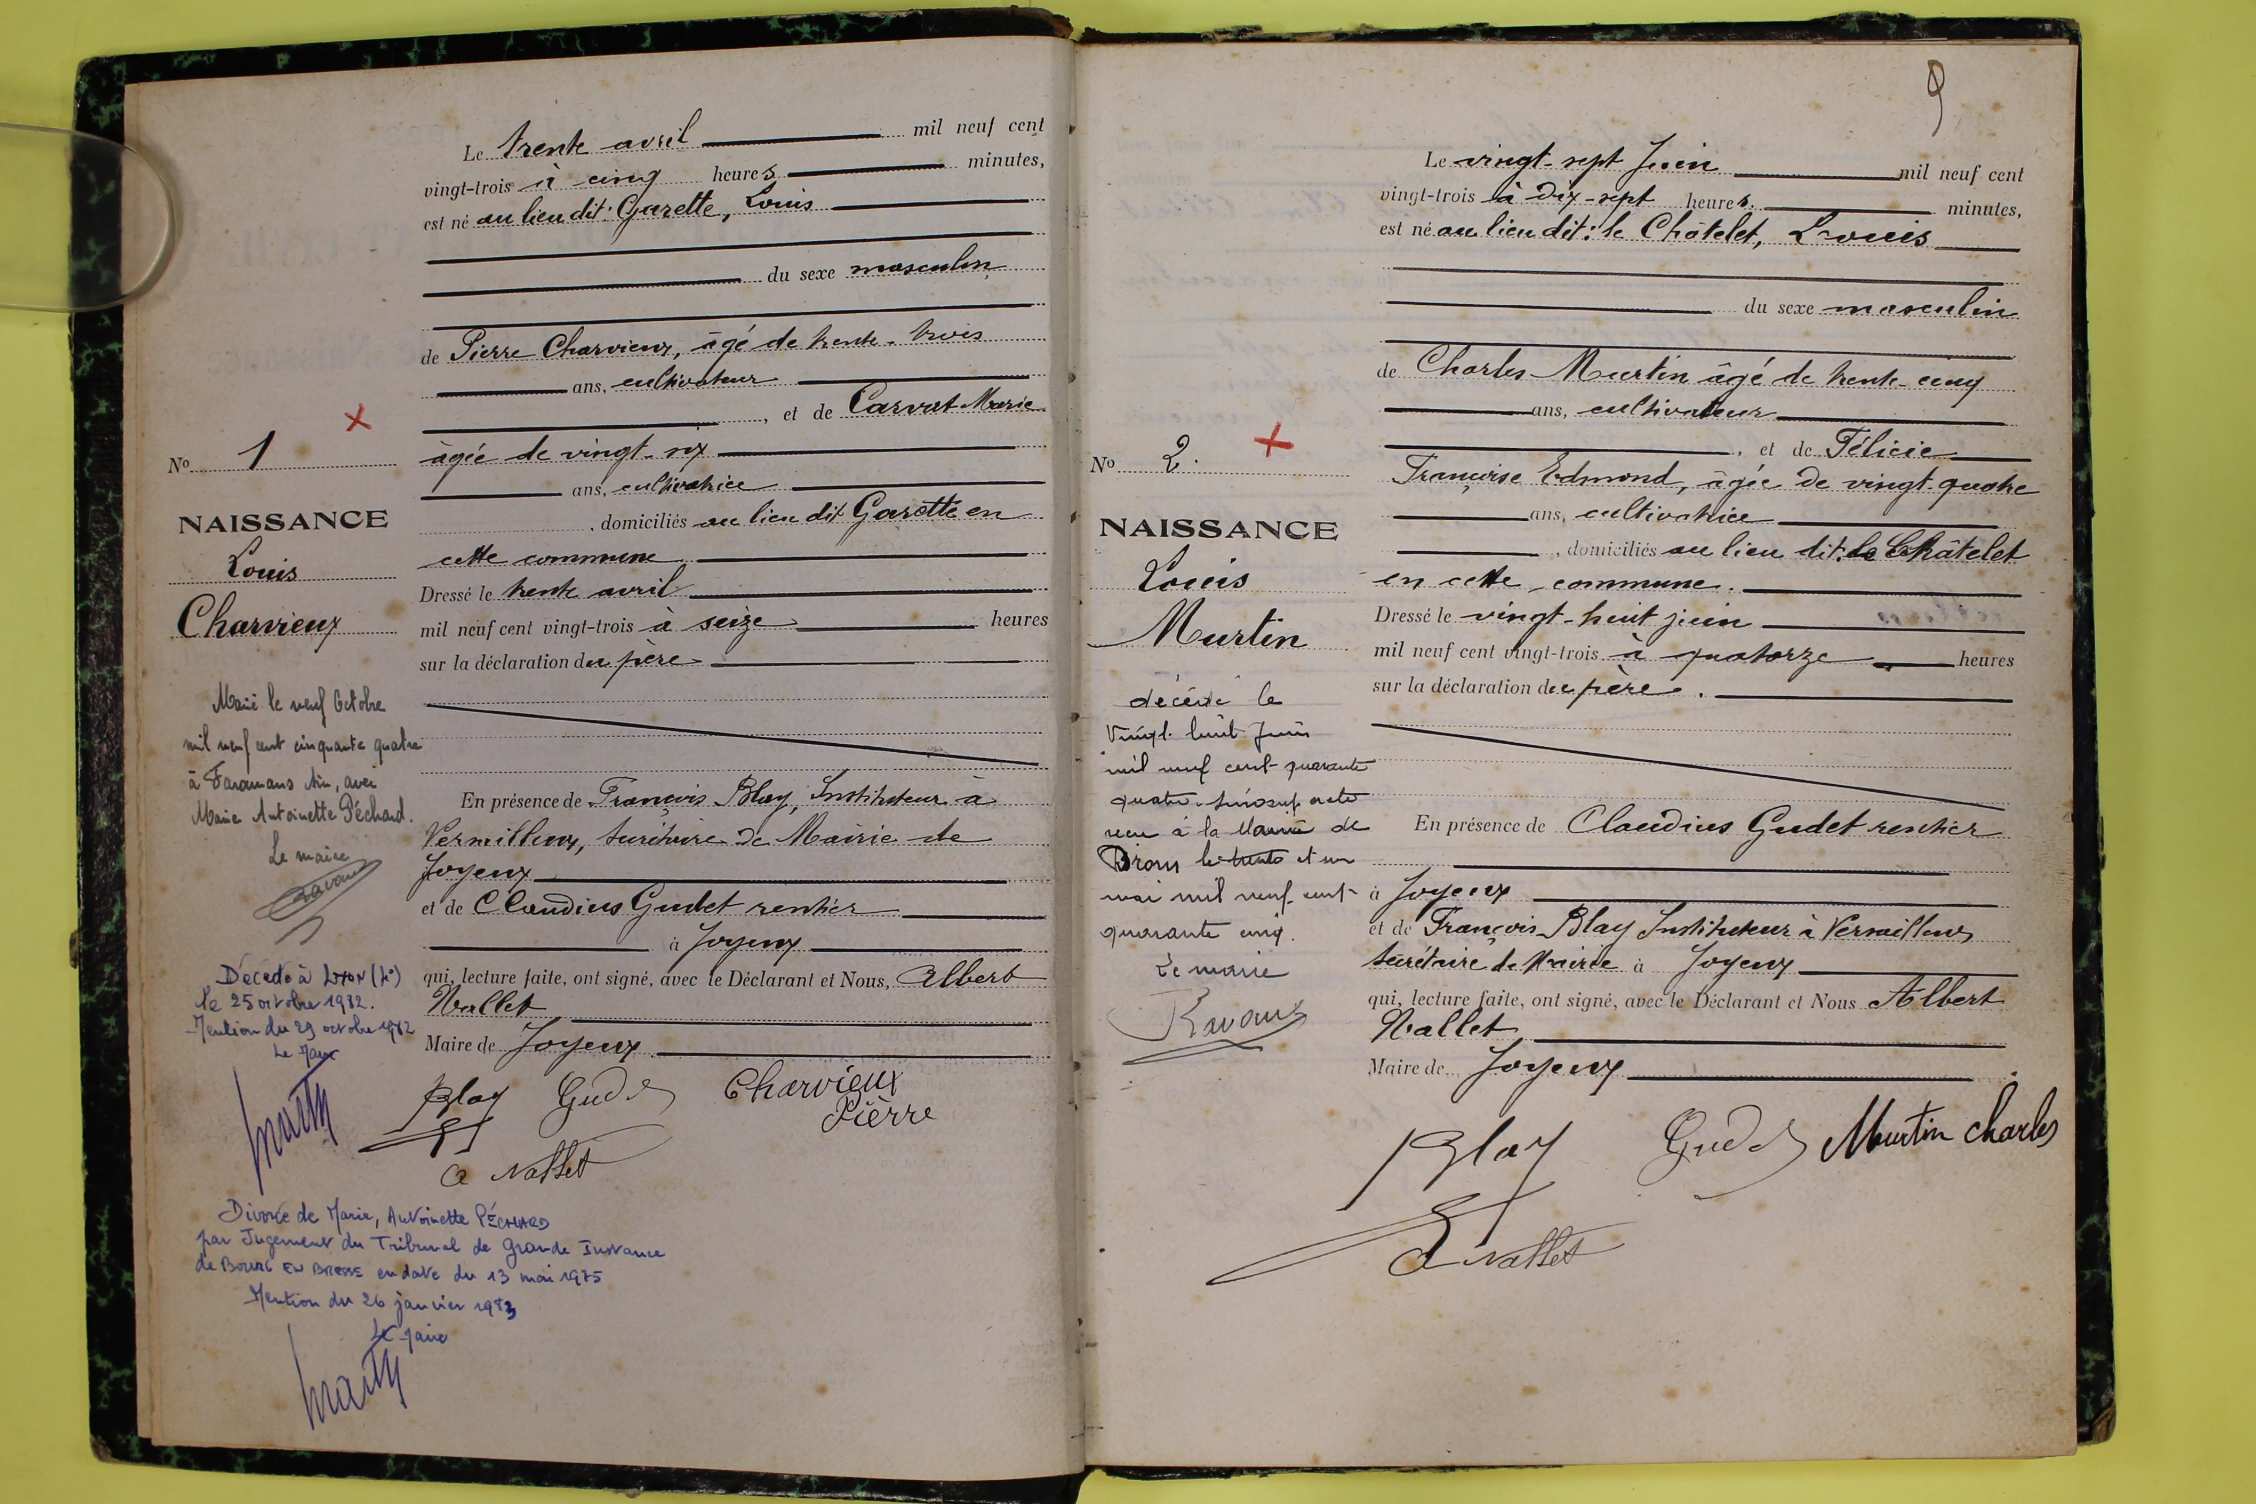 Le trente avril mil neuf cent
vingt-trois à cinq heures minutes,
est né au lieu dit: Garette, Louis
du sexe masculin
de Pierre Charvieux, âgé de trente-trois
ans, cultivateur
, et de Carvat Marie
âgée de vingt-six
ans, cultivatrice
, domiciliés au lieu dit Garette en
cette commune
Dressé le trente avril
mil neuf cent vingt-trois à seize heures
sur la déclaration du père
En présence de François Blay, Instituteur à
Versailleux, secrétaire de Mairie de
Joyeux
et de Claudius Gudet rentier
à Joyeux
qui, lecture faite, ont signé, avec le Déclarant et Nous, Albert
Nallet
Maire de Joyeux
Blay Gudet Charvieux
Pièrre
A Nallet
No 1
NAISSANCE
Louis
Charvieux
Marié le neuf Octobre
mil neuf cent cinquante quatre
à Faramans Ain, avec
Marie Antoinette Péchard.
Le maire
Ravoux
Décédé à LYON (4°)
le 25 octobre 1982.
Mention du 29 octobre 1982
Le Maire
Divorcé de Marie, Antoinette PÉCHARD
par Jugement du Tribunal de Grande Instance
de BOURG EN BRESSE en date du 13 mai 1975
Mention du 26 janvier 1983
Le Maire
9
Le vingt-sept Juin mil neuf cent
vingt-trois à dix-sept heures minutes,
est né au lieu dit: le Châtelet, Louis
du sexe masculin
de Charles Murtin âgé de trente-cinq
ans, cultivateur
, et de Félicie
Françoise Edmond, âgée de vingt-quatre
ans, cultivatrice
, domiciliés au lieu dit: le Châtelet
en cette commune.
Dressé le vingt-huit juin
mil neuf cent vingt-trois à quatorze heures
sur la déclaration du père.
En présence de Claudius Gudet rentier
à Joyeux
et de François Blay Instituteur à Versailleux
secrétaire de Mairie à Joyeux
qui, lecture faite, ont signé, avec le Déclarant et Nous Albert
Nallet
Maire de Joyeux
Blay Gudet Murtin Charles
A Nallet
No 2.
NAISSANCE
Louis
Murtin
décédé le
Vingt huit Juin
mil neuf cent quarante
quatre. acte
à la Mairie de
Bron le trente et un
mai mil neuf cent
quarante cinq.
Le maire
Ravoux